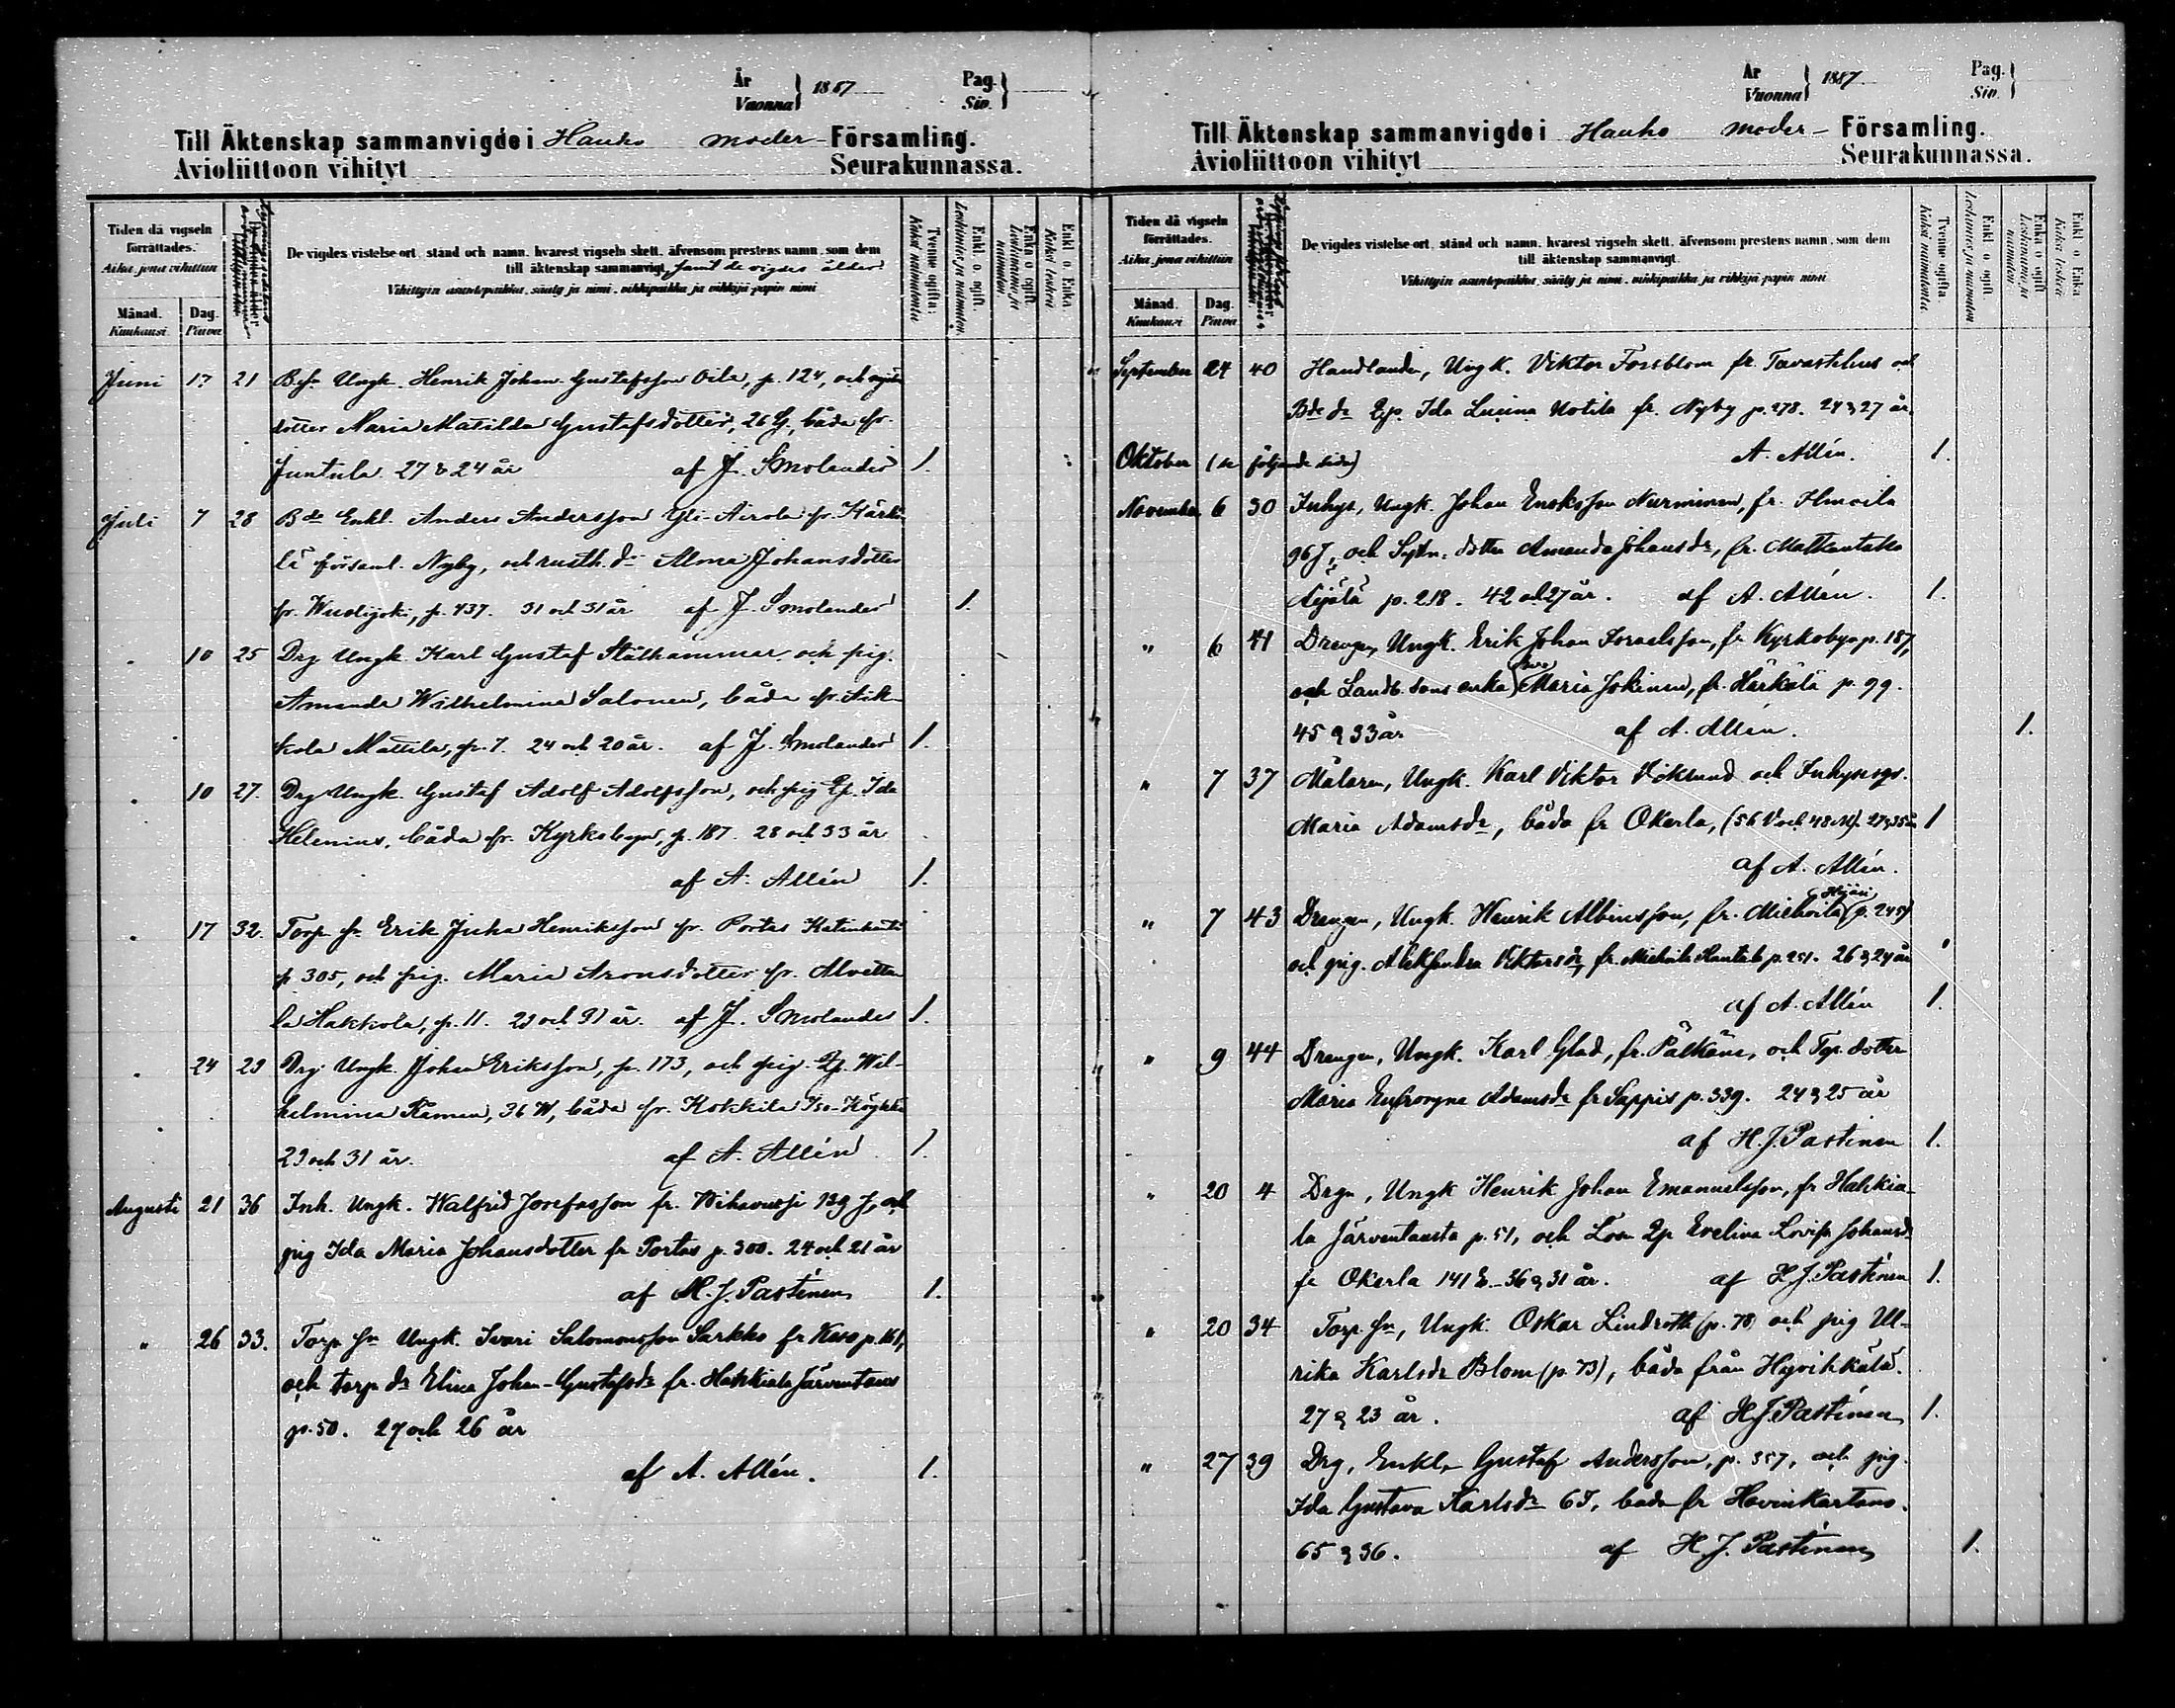 År
Vuonna } 1887
Pag.
Siv.
Till Äktenskap sammanvigde i Hauho moder- Församling.
Avioliittoon vihityt Seurakunnassa.
Tiden då vigseln förrättades.
Aika, jona vihittiin
Månad.
Kuukausi
Dag.
Päivä
De vigdes vistelse ort, stånd och namn, hvarest vigseln skett, äfvensom prestens namn, som dem
till äktenskap sammanvigt, samt de vigdes ålder
Vihittyin asuntopaikka, sääty ja nimi, vihkipaikka ja vihkijä-papin nimi
Tvenne ogifta.
Kaksi naimatonta
Enkl. o. ogift.
Leskimies ja naimaton.
Enka o. ogift
Leskivaimo ja naimaton.
Enkl. o. Enka.
Kaksi leskeä
Juni 17 21 B. sn Ungk. Henrik Johan Gustafsson Oila, p. 124, och
dotter Maria Matilda Gustafsdotter, 26 G, båda fr.
Juntula. 27 & 24 år af J. Smolander 1.
Juli 7 28 Bde Enkl. Anders Andersson Yli-Airola fr. Kärkö-
lä församl. Nyby, och rusth. dr Alma Johansdotter
fr. p. 437. 31 och 31 år af J. Smolander 1.
10 25 Drg Ungk. Karl Gustaf Stålhammar och pig.
Amanda Wilhelmina Salonen, båda fr.
kola Mattila, p. 7. 24 och 20 år. af J. Smolander 1.
10 27. Drg Ungk. Gustaf Adolf Adolfsson, och pig Qp. Ida
Helenius, båda fr. Kyrkobyn, p. 187. 28 och 33 år
af A. Allén 1.
17 32. Torp. sn Erik Juha Henriksson fr. Portas
p 305, och pig. Maria Aronsdotter fr. Alvetta-
la Hakkola, p. 11. 23 och 31 år. af J. Smolander 1.
24 29 Drg Ungk. Johan Eriksson, p. 173, och pig. Qp. Wil-
helmina 36 W, båda fr. Kokkila
29 och 31 år. af A. Allén 1.
Augusti 21 36 Inh. Ungk. Walfrid Josefsson fr. 139 J, och
pig Ida Maria Johansdotter fr Portas p. 300. 24 och 21 år
af H. J. Pastinen 1.
" 26 33. Torp. sn Ungk. Ivari Salomonsson Sarkko fr p. 161,
och torp dr Elina Johan-Gustafsdr fr. Hahkiala Järventaus
p. 50. 27 och 26 år
af A. Allén. 1.
År
Vuonna } 1887
Pag.
Siv.
Till Äktenskap sammanvigde i Hauho moder- Församling.
Avioliittoon vihityt Seurakunnassa.
Tiden då vigseln förrättades.
Aika, jona vihittiin
Månad.
Kuukausi
Dag.
Päivä
De vigdes vistelse ort, stånd och namn, hvarest vigseln skett, äfvensom prestens namn, som dem
till äktenskap sammanvigt.
Vihittyin asuntopaikka, sääty ja nimi, vihkipaikka ja vihkijä-papin nimi
Tvenne ogifta.
Kaksi naimatonta.
Enkl. o. ogift.
Leskimies ja naimaton
Enka o. ogift
Leskivaimo ja naimaton.
Enkl. o. Enka
Kaksi leskeä
September 24 40 Handlanden, Ungk. Viktor Forsblom fr. Tavastehus och
Bde dr Qp. Ida Lucina Uotila fr. Nyby p. 278. 24 & 27 år.
Oktober (se följande sida) A. Allén. 1.
November 6 30 Inhys, Ungk. Johan Enoksson Nurminen, fr. Ilmoila
96 J, och dotter Amanda Johansdr, fr. Matkantaka
p. 218. 42 och 27 år. af A. Allén. 1.
" 6 41 Drengen, Ungk. Erik Johan Israelsson, fr Kyrkobyn p. 187,
och Landb. sons enka Eva Maria Jokinen, fr. Härkälä p. 99.
45 & 33 år af A. Allén. 1.
" 7 37 Målaren, Ungk. Karl Viktor Viklund och
Maria Adamsdr, båda fr Okerla, (56 V och 48 M). 27 & 35 år 1
af A. Allén.
" 7 43 Drengen, Ungk. Henrik Albinsson, fr. Miehoila (p. 245)
och pig. Aleksandra Viktorsdr, fr. Miehoila Rantala p. 251. 26 & 24 år
af A. Allén 1.
" 9 44 Drengen, Ungk. Karl Glad, fr. Pälkäne, och Torp. dotter
Maria Eufrosyne Adamsdr fr Sappis p. 339. 24 & 25 år
af H. J. Pastinen 1.
" 20 4 Drgn, Ungk Henrik Johan Emanuelsson, fr Hahkia-
la Järventausta p. 51, och Qp Evelina Lovisa Johansdr
fr Okerla 141 E. 36 & 31 år. af H. J. Pastinen 1.
" 20 34 Torp. sn, Ungk. Oskar Lindroth (p. 78) och pig Ul-
rika Karlsdr Blom (p. 73), båda från Hyvikkälä.
27 & 23 år. af H J Pastinen 1.
" 27 39 Drg, Enkl. Gustaf Andersson, p. 357, och pig.
Ida Gustava Karlsdr 6 I, båda fr Hovinkartano.
65 & 36. af H. J. Pastinen 1.